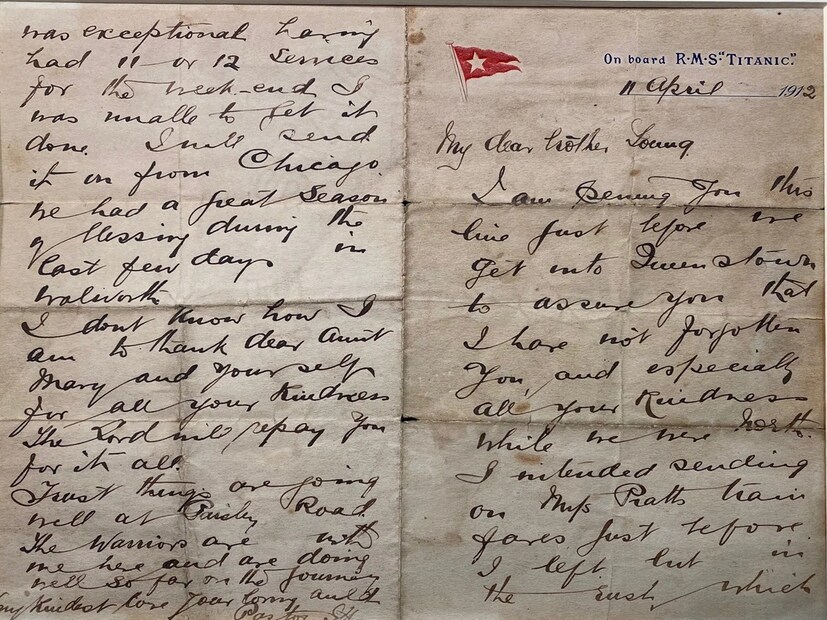 On board R.M.S. "TITANIC."
11 April 1912
My dear brother Young.
I am penning you this
line just before we
get into Queenstown
to assure you that
I have not forgotten
you, and especially
all your kindness
while we were North.
I intended sending
on Miss Pratts train
fares just before
I left but in
the rush which
was exceptional having
had 11 or 12 services
for the week-end I
was unable to get it
done. I will send
it on from Chicago.
we had a great season
of blessing during the
last few days in
walworth.
I dont know how I
am to thank dear Aunt
Mary and yourself
for all your kindness
The Lord will repay you
for it all.
Trust things are going
well at Paisley Road.
The Warriors are with
me here and are doing
well so far on the journey
my kindest love your loving auld
Pastor